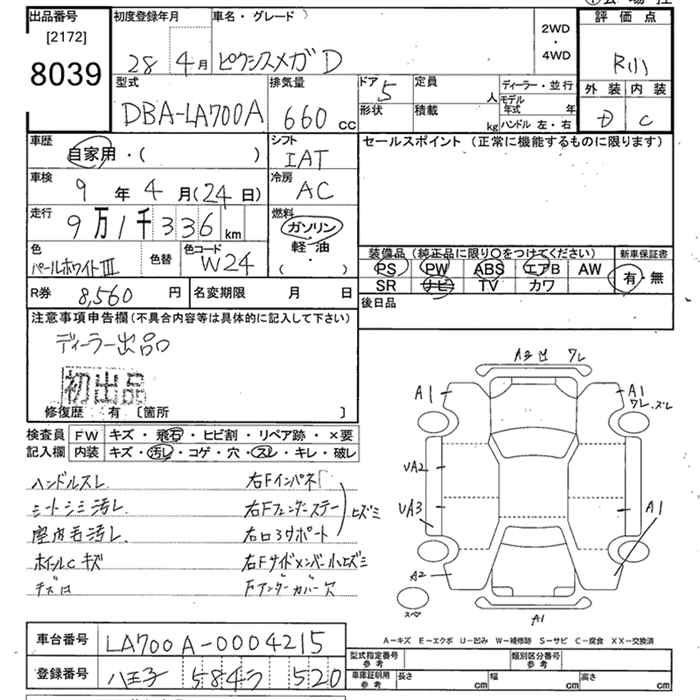 出品番号
[2172]
8039
初度登録年月
28 年 4月
車名・グレード
ピクシスメガ D
2WD
・
4WD
評価点
R111
外装 内装
D C
型式
DBA-LA700A
排気量
660 cc
ドア 5
形状
定員 人
積載 kg
ディーラー・並行
モデル年式 年
ハンドル 左・右
車歴
自家用・( )
シフト
IAT
車検
9 年 4 月 (24 日)
冷房
AC
走行
9万1千336 km
燃料
ガソリン
軽油
( ・ )
色
パールホワイトIII
色替
色コード
W24
R券 8,560 円
名変期限 月 日
セールスポイント (正常に機能するものに限ります)
装備品 (純正品に限り〇をつけてください)
新車保証書
PS PW ABS エアB AW
SR ナビ TV カワ
有・無
後日品
注意事項申告欄 (不具合内容等は具体的に記入して下さい)
ディーラー出品
初出品
修復歴 有 [箇所 ]
検査員 記入欄
FW キズ・飛石・ヒビ割・リペア跡・×要
内装 キズ・汚し・コゲ・穴・スレ・キレ・破レ
ハンドルスレ
シートシミ汚レ
室内毛汚レ
ホイルCキズ
右Fインパネ
右Fフェンダーステー
右ロアサポート
ヒズミ
右Fサイドメンバー小ヒズミ
Fアンダーカバー穴
ワレ
A1
A1
ワレ.ズレ
UA2
UA3
A1
A2
スペア
A1
A-キズ E-エクボ U-凹み W-補修跡 S-サビ C-腐食 XX-交換済
車台番号 LA700A-0004215
登録番号 八王子 584 520
型式指定番号 参考
類別区分番号 参考
車庫証明用 参考
長さ cm
幅 cm
高さ cm